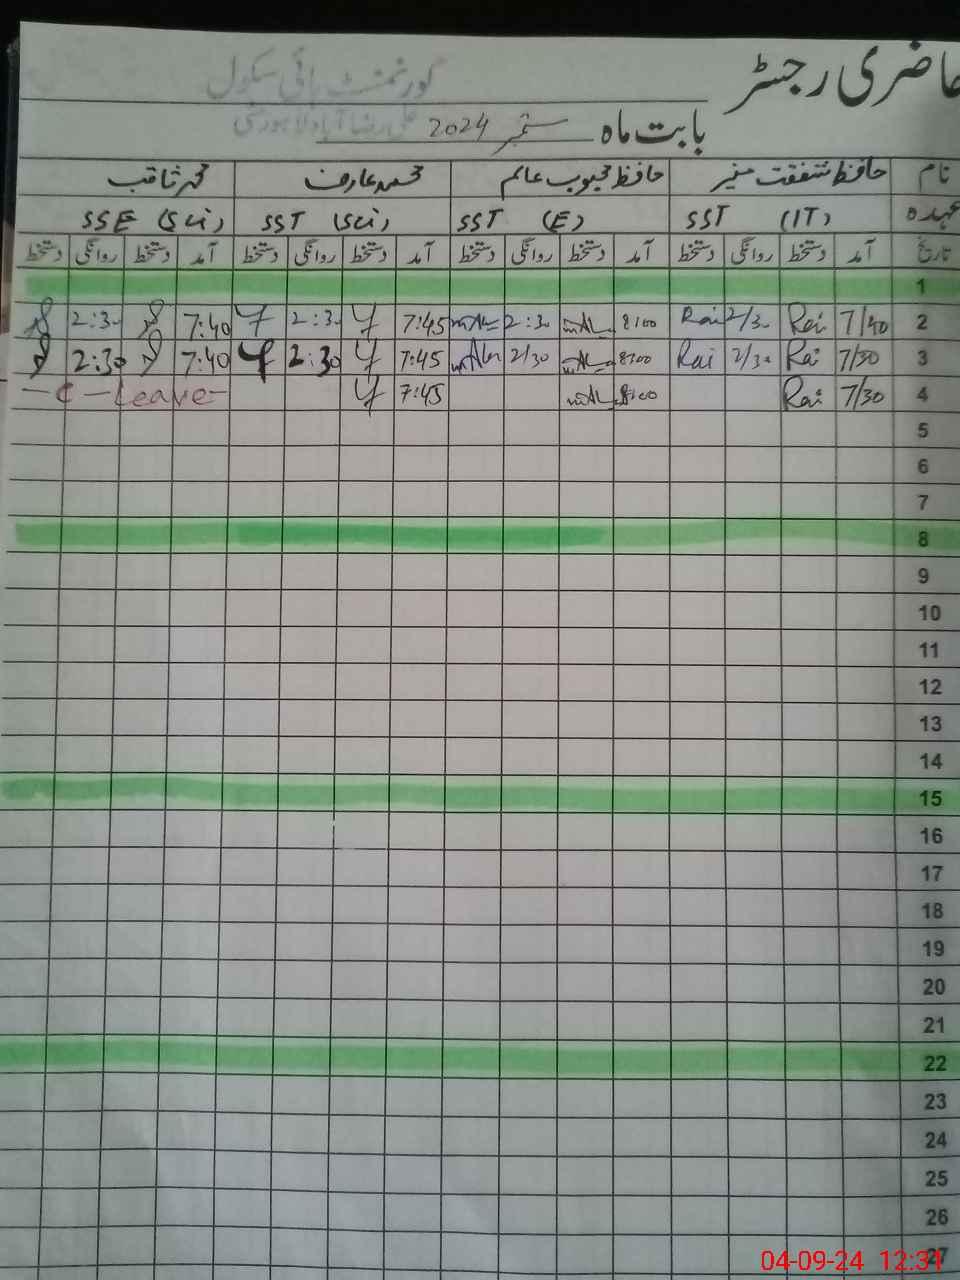 حاضری رجسٹر
گورنمنٹ ہائی سکول
بابت ماہ ستمبر 2024
نام حافظ شفقت منیر حافظ محبوب عالم محمد عارف محمد ثاقب
عہدہ SST (IT) SST (E) SST (Sci) SSE (Sci)
تاریخ آمد دستخط روانگی دستخط آمد دستخط روانگی دستخط آمد دستخط روانگی دستخط آمد دستخط روانگی دستخط
1
2 7/40 Rai 2/30 Rai 8:00 2:30 7:45 2:30 7:40 2:30
3 7/30 Rai 2/30 Rai 8:00 2/30 7:45 2:30 7:40 2:30
4 7/30 Rai 8:00 7:45 - C - Leave -
5
6
7
8
9
10
11
12
13
14
15
16
17
18
19
20
21
22
23
24
25
26
27
04-09-24 12:31